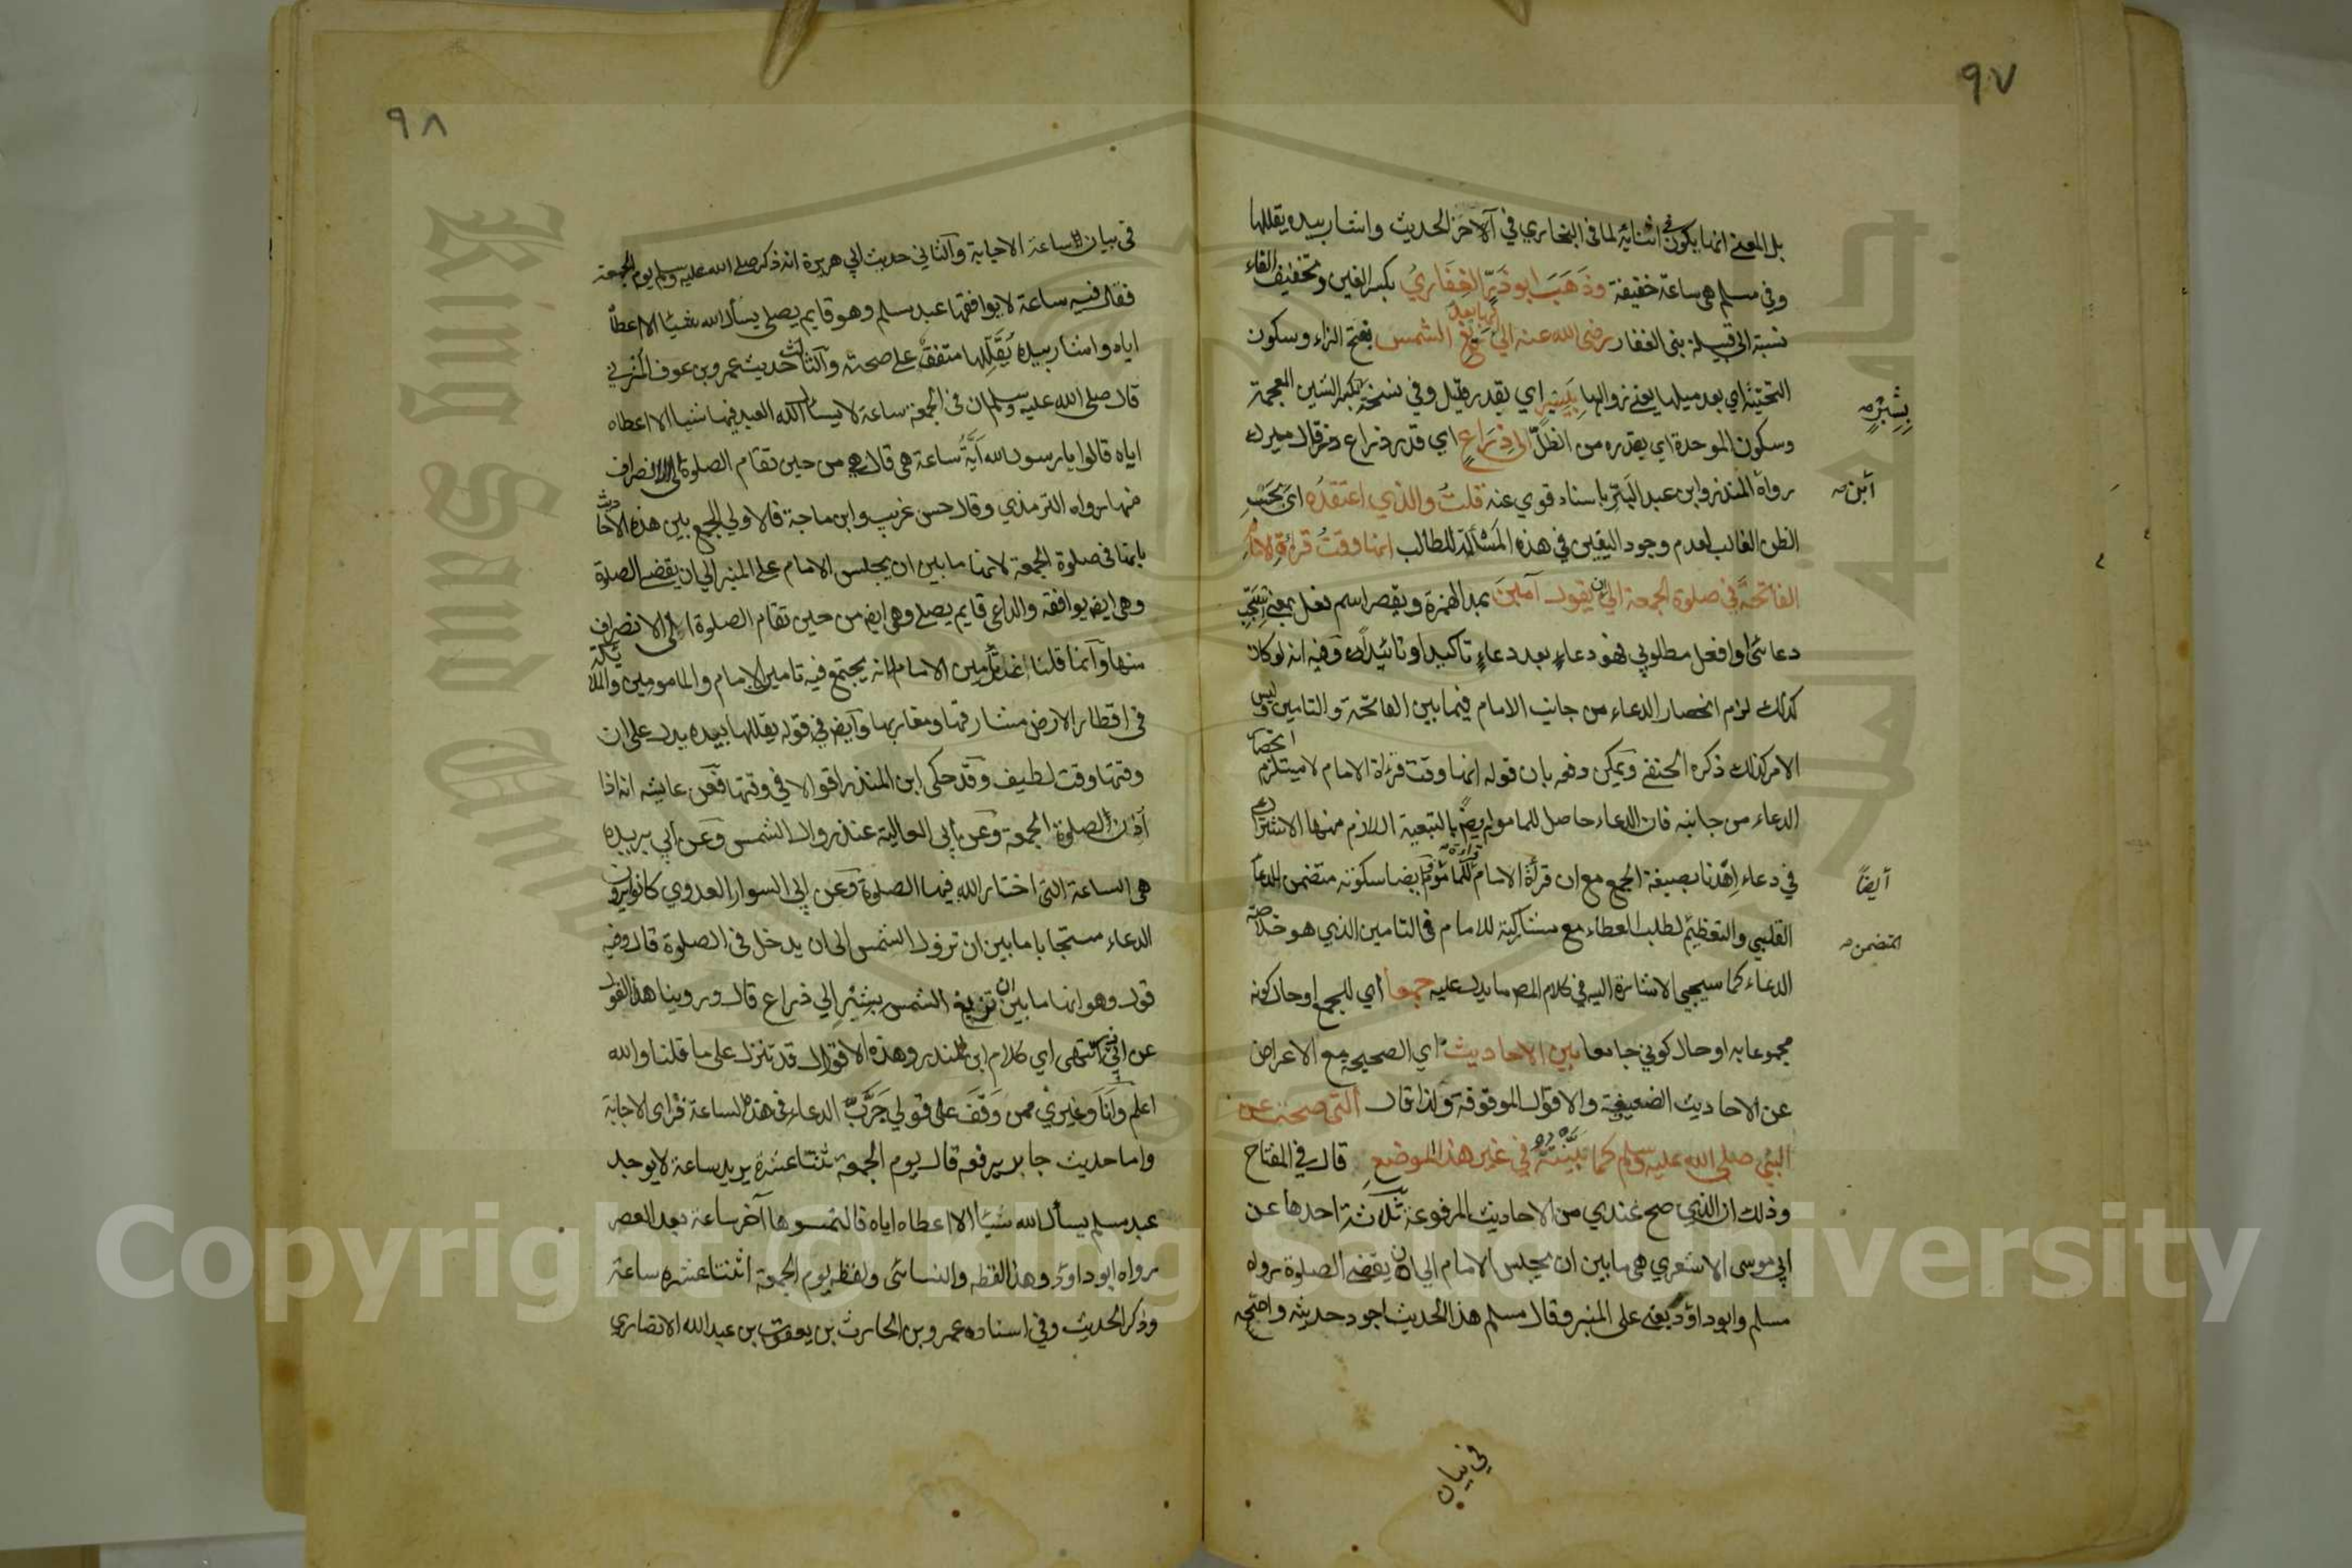 ٩٧
بل المعنى انها يكون في اثنائه لما في البخاري في آلاخر الحديث واشار بيده يقللها
وفي مسلم هي ساعة خفيفة وذَهَبَ ابو ذَرّ الغِفَاريُ بكسر الغين وتخفيف الفاء
نسبة الى قبيلة بني الغفار رضي الله عنه الى انها بعد زيغ الشمس بفتح الزاء وسكون
التحتية اي بعد ميلها يعني زوالها بيسير اي بقدر قليل وفي نسخة بكسر الشين المعجمة
بِشِبْرٍ صح
وسكون الموحدة اي بقدره من الظلّ الى ذِرَاعٍ اي قدر ذراع وقال ميرك
رواه المنذر وابن عبد البَرّ باسناد قوي عنه قلتُ والذي اعتقدُه اى بحَسْبِ
ابن صح
الظن الغالب لعدم وجود اليقين في هذه المَسْألة للطالب انها وقتُ قرأة الامام
الفاتحَةَ في صلوة الجمعة الى ان يقول آمين بمد الهمزة ويقصر اسم فعل بمعنى استجب
دعائي او افعل مطلوبي فهو دعاءٍ بعد دعاءٍ تاكيدا وتائيدًا وفيه انه لو كان
كذلك لزم انحصار الدعاء من جانب الامام فيما بين الفاتحة والتامين وليس
الامر كذلك ذكره الحنفي ويمكن دفعه بان قوله انها وقت قرأة الامام لا يستلزم انحصار
الدعاء من جانبه فان الدعاء حاصل للماموم ايضً بالتبعية اللازم منها الاشتراك
في دعاء اِهْدنا بصيغة الجمع مع ان قرأة الامام للماموم قراءة ايضا سكوته متضمن للدعا
أيضًا
القلبي والتعظيم لطلب العطاء مع مشاركته للامام في التامين الذي هو خلاصة
المتضمن صح
الدعاء كما سيجيء الاشارة اليه في كلام المصـ ما يدل عليه جمعاً اي للجمع او حال كونه
مجموعا به او حال كوني جامعا بين الاحاديث اي الصحيحة مع الاعراض
عن الاحاديث الضعيفة والاقوال الموقوفة ولذا قال التي صحت عن
النبي صلى الله عليه وسلم كما بَيَّنْتُهُ في غير هذا الموضعِ قال في المفتاح
وذلك ان الذي صح عندي من الاحاديث المرفوعة ثلاثة احدها عن
ابي موسى الاشعري هي ما بين ان يجلس الامام الى ان يقضى الصلوة رواه
مسلم وابو داود يعني على المنبر وقال مسلم هذا الحديث اجود حديث واصحه
في بيان
٩٨
في بيان ساعة الاجابة والثاني حديث ابي هريرة انه ذكر صلى الله عليه وسلم يوم الجمعة
فقال فيه ساعة لا يوافقها عبد مسلم وهو قايم يصلى يسأل الله شيئا الا اعطاه
اياه واشار بيده يُقَلِّلها متفق على صحته والثالث حديث عمرو بن عوف المزني
قال صلى الله عليه وسلم ان في الجمعة ساعة لا يسأل الله العبد فيها شيا الا اعطاه
اياه قالوا يا رسول الله اَيَّةُ ساعة هي قال هي من حين تقام الصلوة الى الانصراف
منها رواه الترمذي وقال حسن غريب وابن ماجة فالاولى الجمع بين هذه الاحاديث
بانها في صلوة الجمعة لانها ما بين ان يجلس الامام على المنبر الى ان يقضى الصلوة
وهي ايضـ يوافقه والداعي قايم يصلي وهي ايضـ من حين تقام الصلوة الى الانصراف
منها وانما قلنا عند تأمين الامام لانه يجتمع فيه تامين الامام والمامومين والملائكة
في اقطار الارض مشارقها ومغاربها وايضـ في قوله يقللها بيده يدل على ان
وقتها وقت لطيف وقد حكى ابن المنذر اقوالا في وقتها فعن عايشه انه اذا
اَذن لصلوة الجمعة وعن ابي العالية عند زوال الشمس وعن ابي بريده
هي الساعة التي اختار الله فيها الصلوة وعن ابي السوار العدوي كانوا يرون
الدعاء مستجابا ما بين ان تزول الشمس الى ان يدخل في الصلوة قال وفيه
قول وهو انها ما بين ان تزيغ الشمس بِشِبْرٍ الى ذراع قال وروينا هذا القول
عن ابي ذر انتهى اي كلام ابن المنذر وهذه الاقوال قد تنزل على ما قلنا والله
اعلم وانا وغيري ممن وَقَفَ على قولي جَرَّبَ الدعاء في هذه الساعة فراى الاجابة
واما حديث جابر يرفعه قال يوم الجمعة ثنتا عشرة يريد ساعة لا يوجد
عبد مسلم يسأل الله شيئا الا اعطاه اياه فالتمسوها آخر ساعة بعد العصر
رواه ابو داود وهذا لفظه والنسائى ولفظه يوم الجمعة اثنتا عشرة ساعة
وذكر الحديث وفي اسناده عمرو بن الحارث بن يعقوب بن عبد الله الانصاري
Copyright © King Saud University